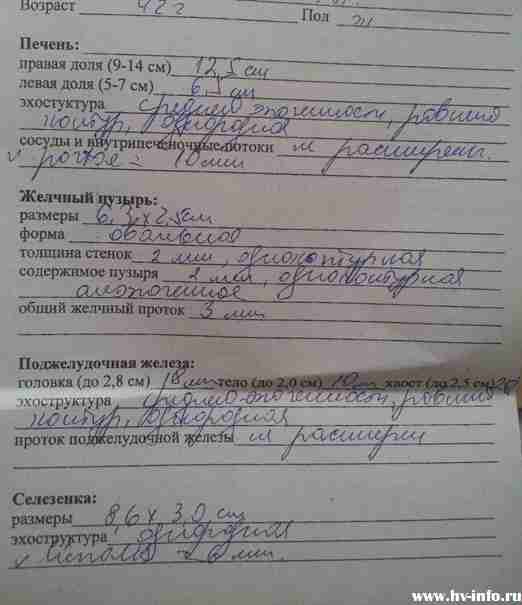 Возраст 42 г Пол ж
Печень:
правая доля (9-14 см) 12,5 см
левая доля (5-7 см) 6,5 см
эхостуктура средней эхогенности, ровный
контур, однородная
сосуды и внутрипеченочные потоки не расширены.
v. portae = 10 мм
Желчный пузырь:
размеры 6,3 х 2,5 см
форма овальное
толщина стенок 2 мм, одноконтурная
содержимое пузыря 2 мм, одноконтурная
анэхогенное
общий желчный проток 3 мм
Поджелудочная железа:
головка (до 2,8 см) 18 мм тело (до 2,0 см) 10 хвост (до 2,5 см) 20
эхоструктура средней эхогенности, ровный
контур, однородная
проток поджелудочной железы не расширен
Селезенка:
размеры 8,6 х 3,0 см
эхоструктура однородная
v. lienalis 6 мм.
www.hv-info.ru